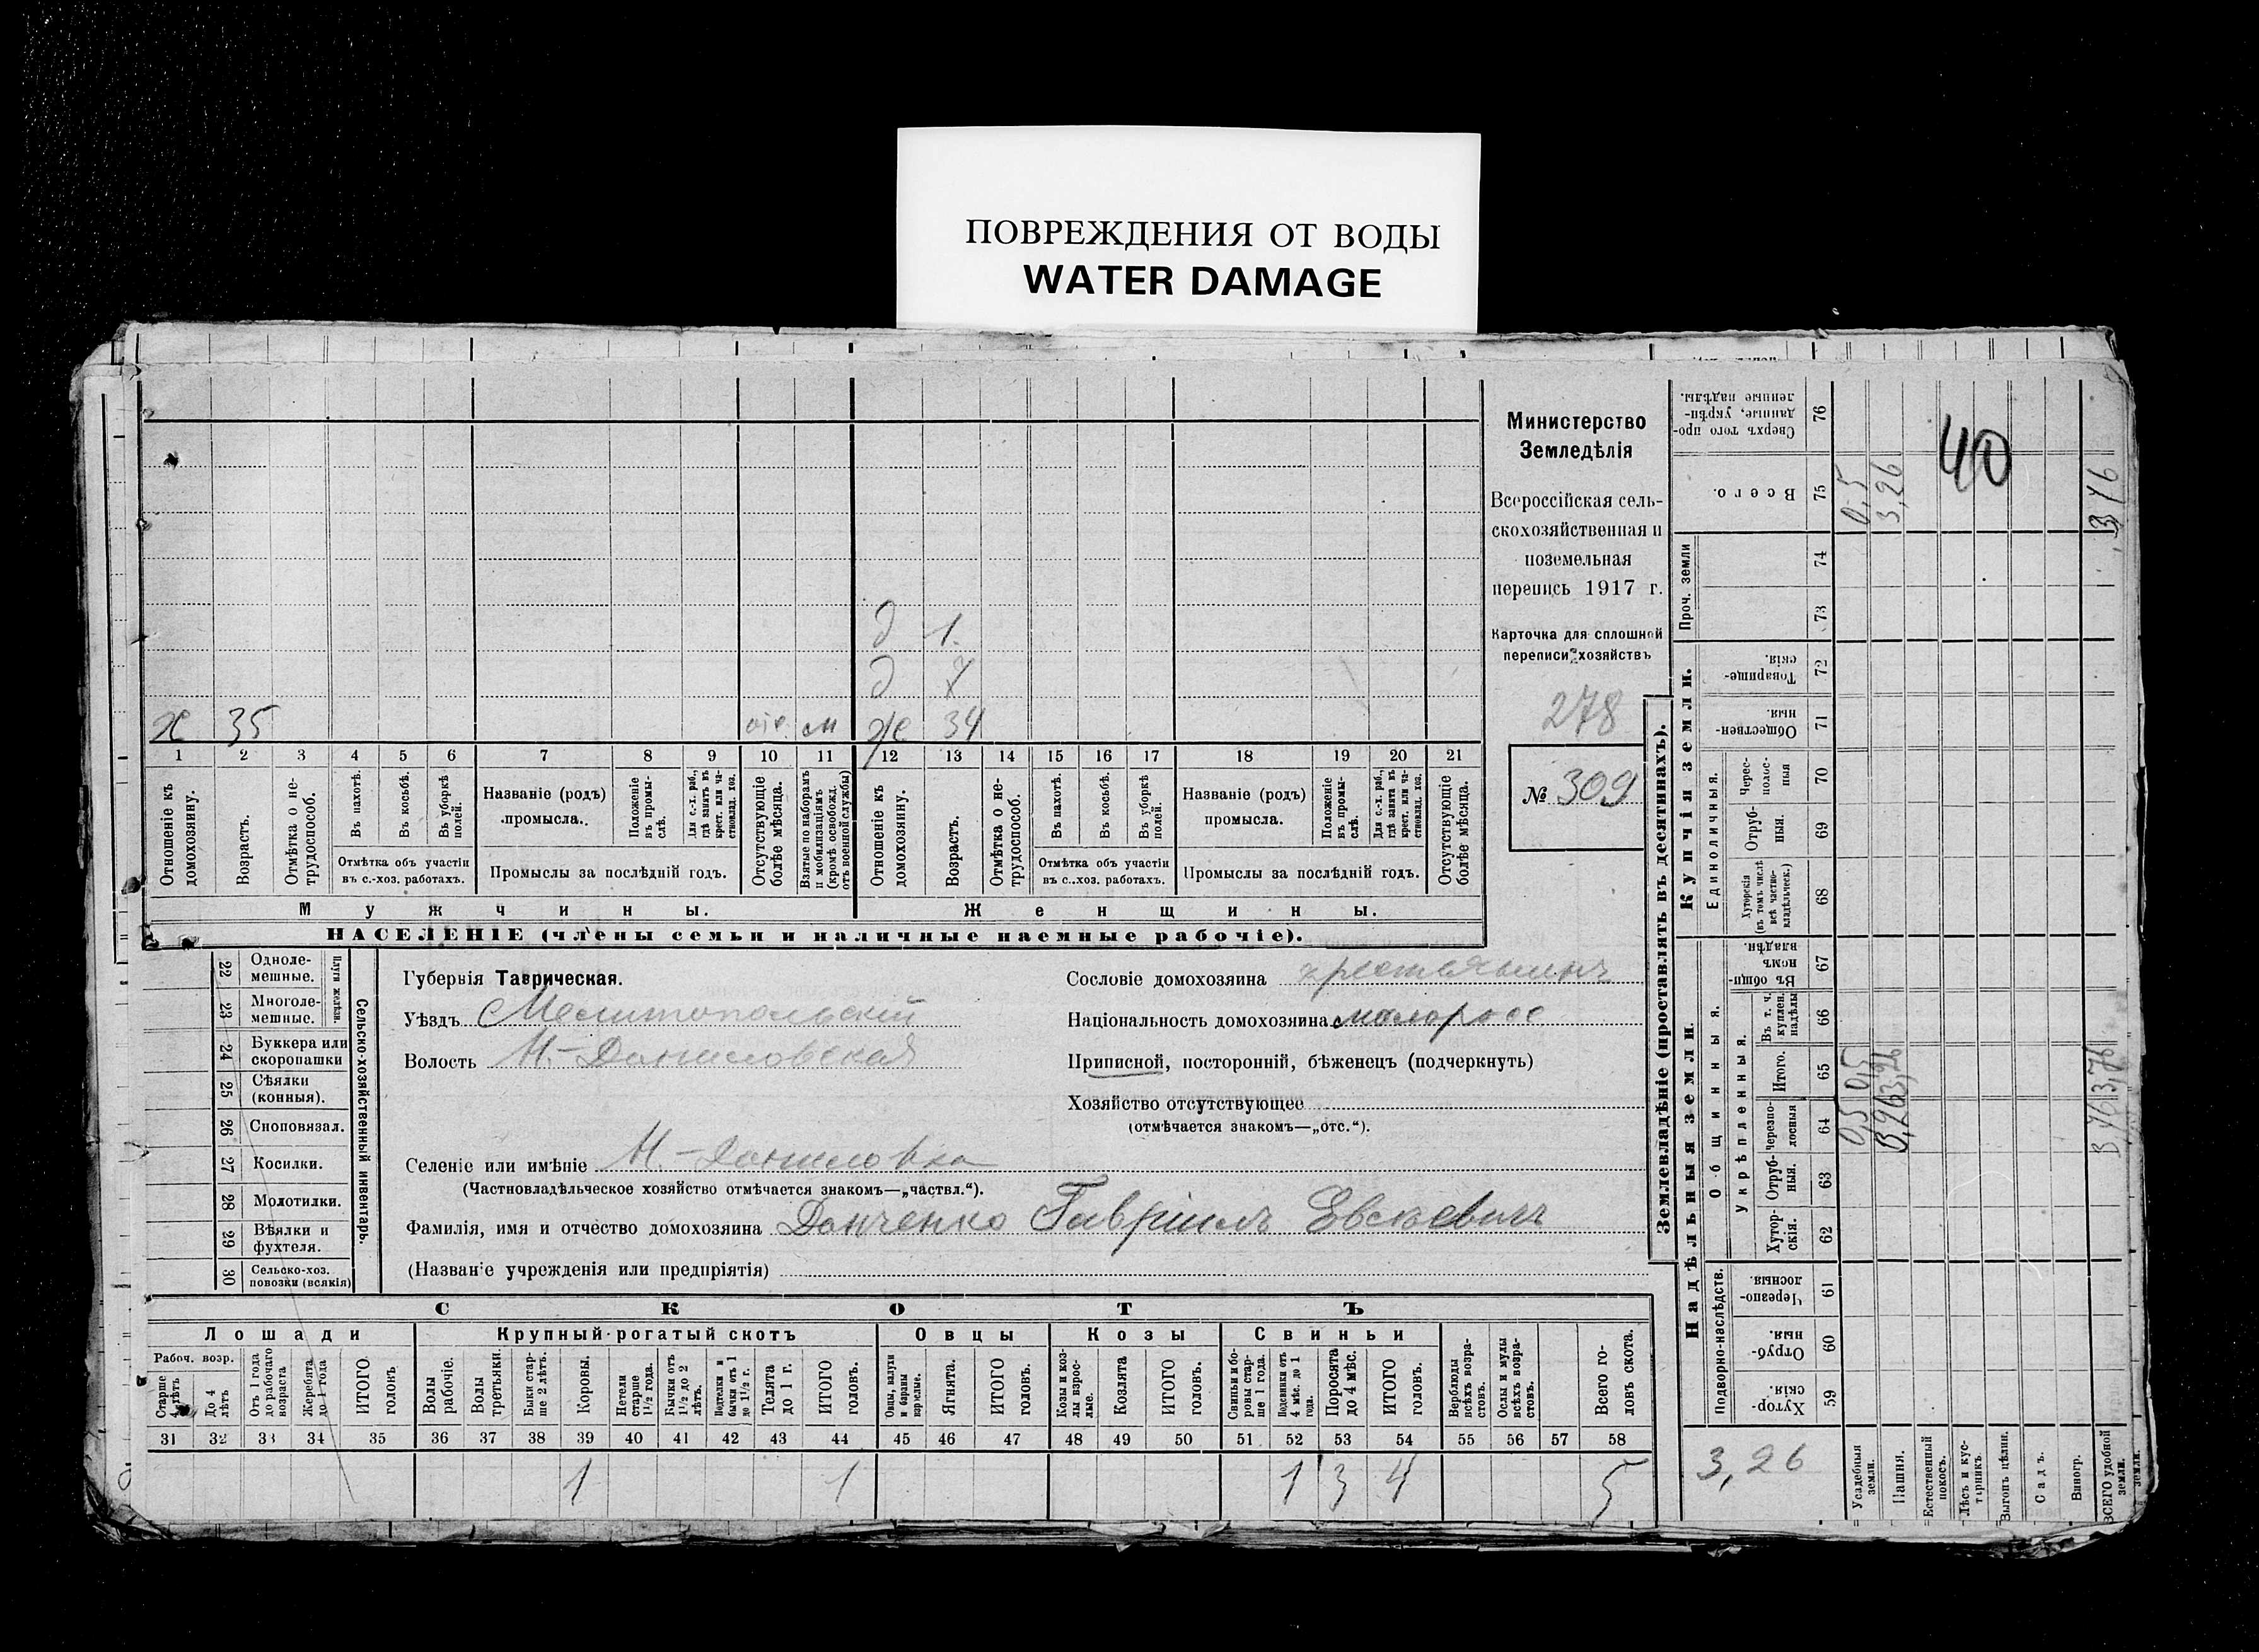 ПОВРЕЖДЕНИЯ ОТ ВОДЫ
WATER DAMAGE
Министерство
Земледѣлія
Всероссійская сель-
скохозяйственная и
поземельная
перепись 1917 г.
Карточка для сплошной
переписи хозяйствъ
278
№ 309
д 1
д 7
х 35 отс. м ж 34
1 2 3 4 5 6 7 8 9 10 11 12 13 14 15 16 17 18 19 20 21
Отношеніе къ домохозяину.
Возрастъ.
Отмѣтка о не-трудоспособ.
Въ пахотѣ.
Въ косьбѣ.
Въ уборкѣ полей.
Отмѣтка объ участіи
въ с.-хоз. работахъ.
Названіе (родъ)
промысла.
Положеніе въ промы-слѣ.
Для с.-х. раб., гдѣ занятъ въ крест. или ча-стновлад. хоз.
Промыслы за послѣдній годъ.
Отсутствующіе болѣе мѣсяца.
Взятые по наборамъ и мобилизаціямъ (кромѣ освобожд. отъ военной службы)
Отношеніе къ домохозяину.
Возрастъ.
Отмѣтка о не-трудоспособ.
Въ пахотѣ.
Въ косьбѣ.
Въ уборкѣ полей.
Отмѣтка объ участіи
въ с.-хоз. работахъ.
Названіе (родъ)
промысла.
Положеніе въ промы-слѣ.
Для с.-х. раб., гдѣ занята въ крест. или ча-стновлад. хоз.
Промыслы за послѣдній годъ.
Отсутствующіе болѣе мѣсяца.
Мужчины. Женщины.
НАСЕЛЕНІЕ (члены семьи и наличные наемные рабочіе).
22 Одноле-мешные.
23 Многоле-мешные.
Плуги желѣзн.
24 Буккера или скоропашки
25 Сѣялки (конныя).
26 Сноповязал.
27 Косилки.
28 Молотилки.
29 Вѣялки и фухтеля.
30 Сельско-хоз. повозки (всякія)
Сельско-хозяйственный инвентарь.
Губернія Таврическая.
Уѣздъ Мелитопольскій
Волость Н.-Даниловская
Селеніе или имѣніе Н.-Даниловка
(Частновладѣльческое хозяйство отмѣчается знакомъ—„частвл.“).
Фамилія, имя и отчество домохозяина Данченко Гавріилъ Евсѣевичъ
(Названіе учрежденія или предпріятія)
Сословіе домохозяина крестьянинъ
Національность домохозяина малоросс
Приписной, посторонній, бѣженецъ (подчеркнуть)
Хозяйство отсутствующее
(отмѣчается знакомъ—„отс.“).
СКОТЪ
Лошади Крупный рогатый скотъ Овцы Козы Свиньи
Рабоч. возр.
Старше 4 лѣтъ
До 4 лѣтъ
Отъ 1 года до рабочаго возраста
Жеребята до 1 года
ИТОГО головъ
Волы рабочіе.
Волы третьяки.
Быки стар-ше 2 лѣтъ.
Коровы.
Нетели старше 1½ года.
Бычки отъ 1½ до 2 лѣтъ.
Подтелки и бычки отъ 1 до 1½ г.
Телята до 1 г.
ИТОГО головъ.
Овцы, валухи и бараны взрослые.
Ягнята.
ИТОГО головъ.
Козы и коз-лы взрос-лые.
Козлята
ИТОГО головъ.
Свиньи и бо-ровы стар-ше 1 года.
Подсвинки отъ 4 мѣс. до 1 года.
Поросята до 4 мѣс.
ИТОГО головъ.
Верблюды всѣхъ возра-стовъ.
Ослы и мулы всѣхъ возра-стовъ.
Всего го-ловъ скота.
31 32 33 34 35 36 37 38 39 40 41 42 43 44 45 46 47 48 49 50 51 52 53 54 55 56 57 58
1 1 1 3 4 5
Землевладѣніе (проставлять въ десятинахъ).
Надѣльныя земли. Купчія земли.
Подворно-наслѣдств.
Общинныя.
Укрѣпленныя.
Единоличныя.
Проч. земли
Сверхъ того про-данные, укрѣп-ленные надѣлы. 76
Всего. 75
74
73
Товарище-скія. 72
Обществен-ныя. 71
Черес-полос-ныя 70
Отруб-ныя. 69
Хуторскія (въ томъ числѣ всѣ частно-владѣльческ.) 68
Въ общин-номъ владѣн. 67
Въ т. ч. куплен. надѣлы 66
Итого. 65
Черезпо-лосныя 64
Отруб-ныя. 63
Хутор-скія. 62
Черезпо-лосныя 61
Отруб-ныя. 60
Хутор-скія. 59
40
0,5
3,26
0,5 0,5
3,26
Усадебныя земли.
Пашня.
Естественный покосъ.
Лѣсъ и кус-тарникъ.
Выгонъ цѣлин.
Садъ.
Виногр.
ВСЕГО удобной земли.